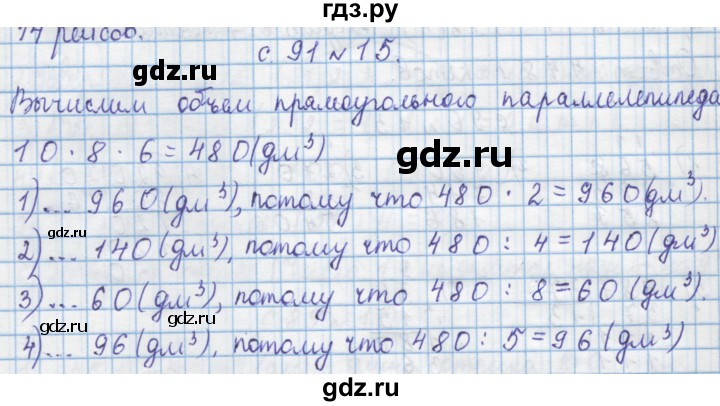 гдз.ру
17 рейсов.
с. 91 № 15.
gdz.ru
gdz.ru
Вычислим объем прямоугольного параллелепипеда
10 · 8 · 6 = 480 (дм³)
gdz.ru
1) ... 960 (дм³), потому что 480 · 2 = 960 (дм³).
gdz.ru
gdz.ru
2) ... 140 (дм³), потому что 480 : 4 = 140 (дм³)
3) ... 60 (дм³), потому что 480 : 8 = 60 (дм³).
gdz.ru
gdz.ru
4) ... 96 (дм³), потому что 480 : 5 = 96 (дм³)
gdz.ru